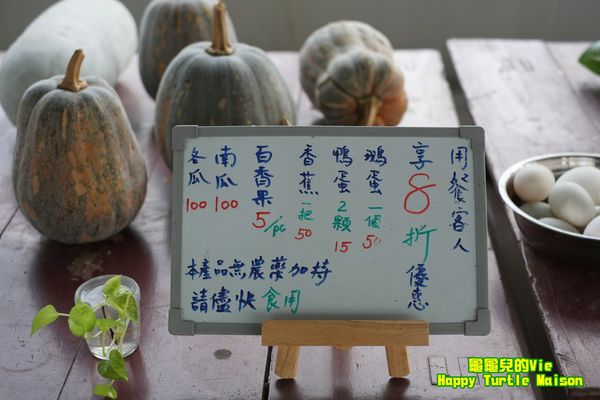 用餐客人
享8折優惠
鵝蛋一個50
鴨蛋2顆15
香蕉一把50
百香果5/pc
南瓜100
冬瓜100
本產品無農藥加持
請儘快食用
龜龜兒的Vie
Happy Turtle Maison